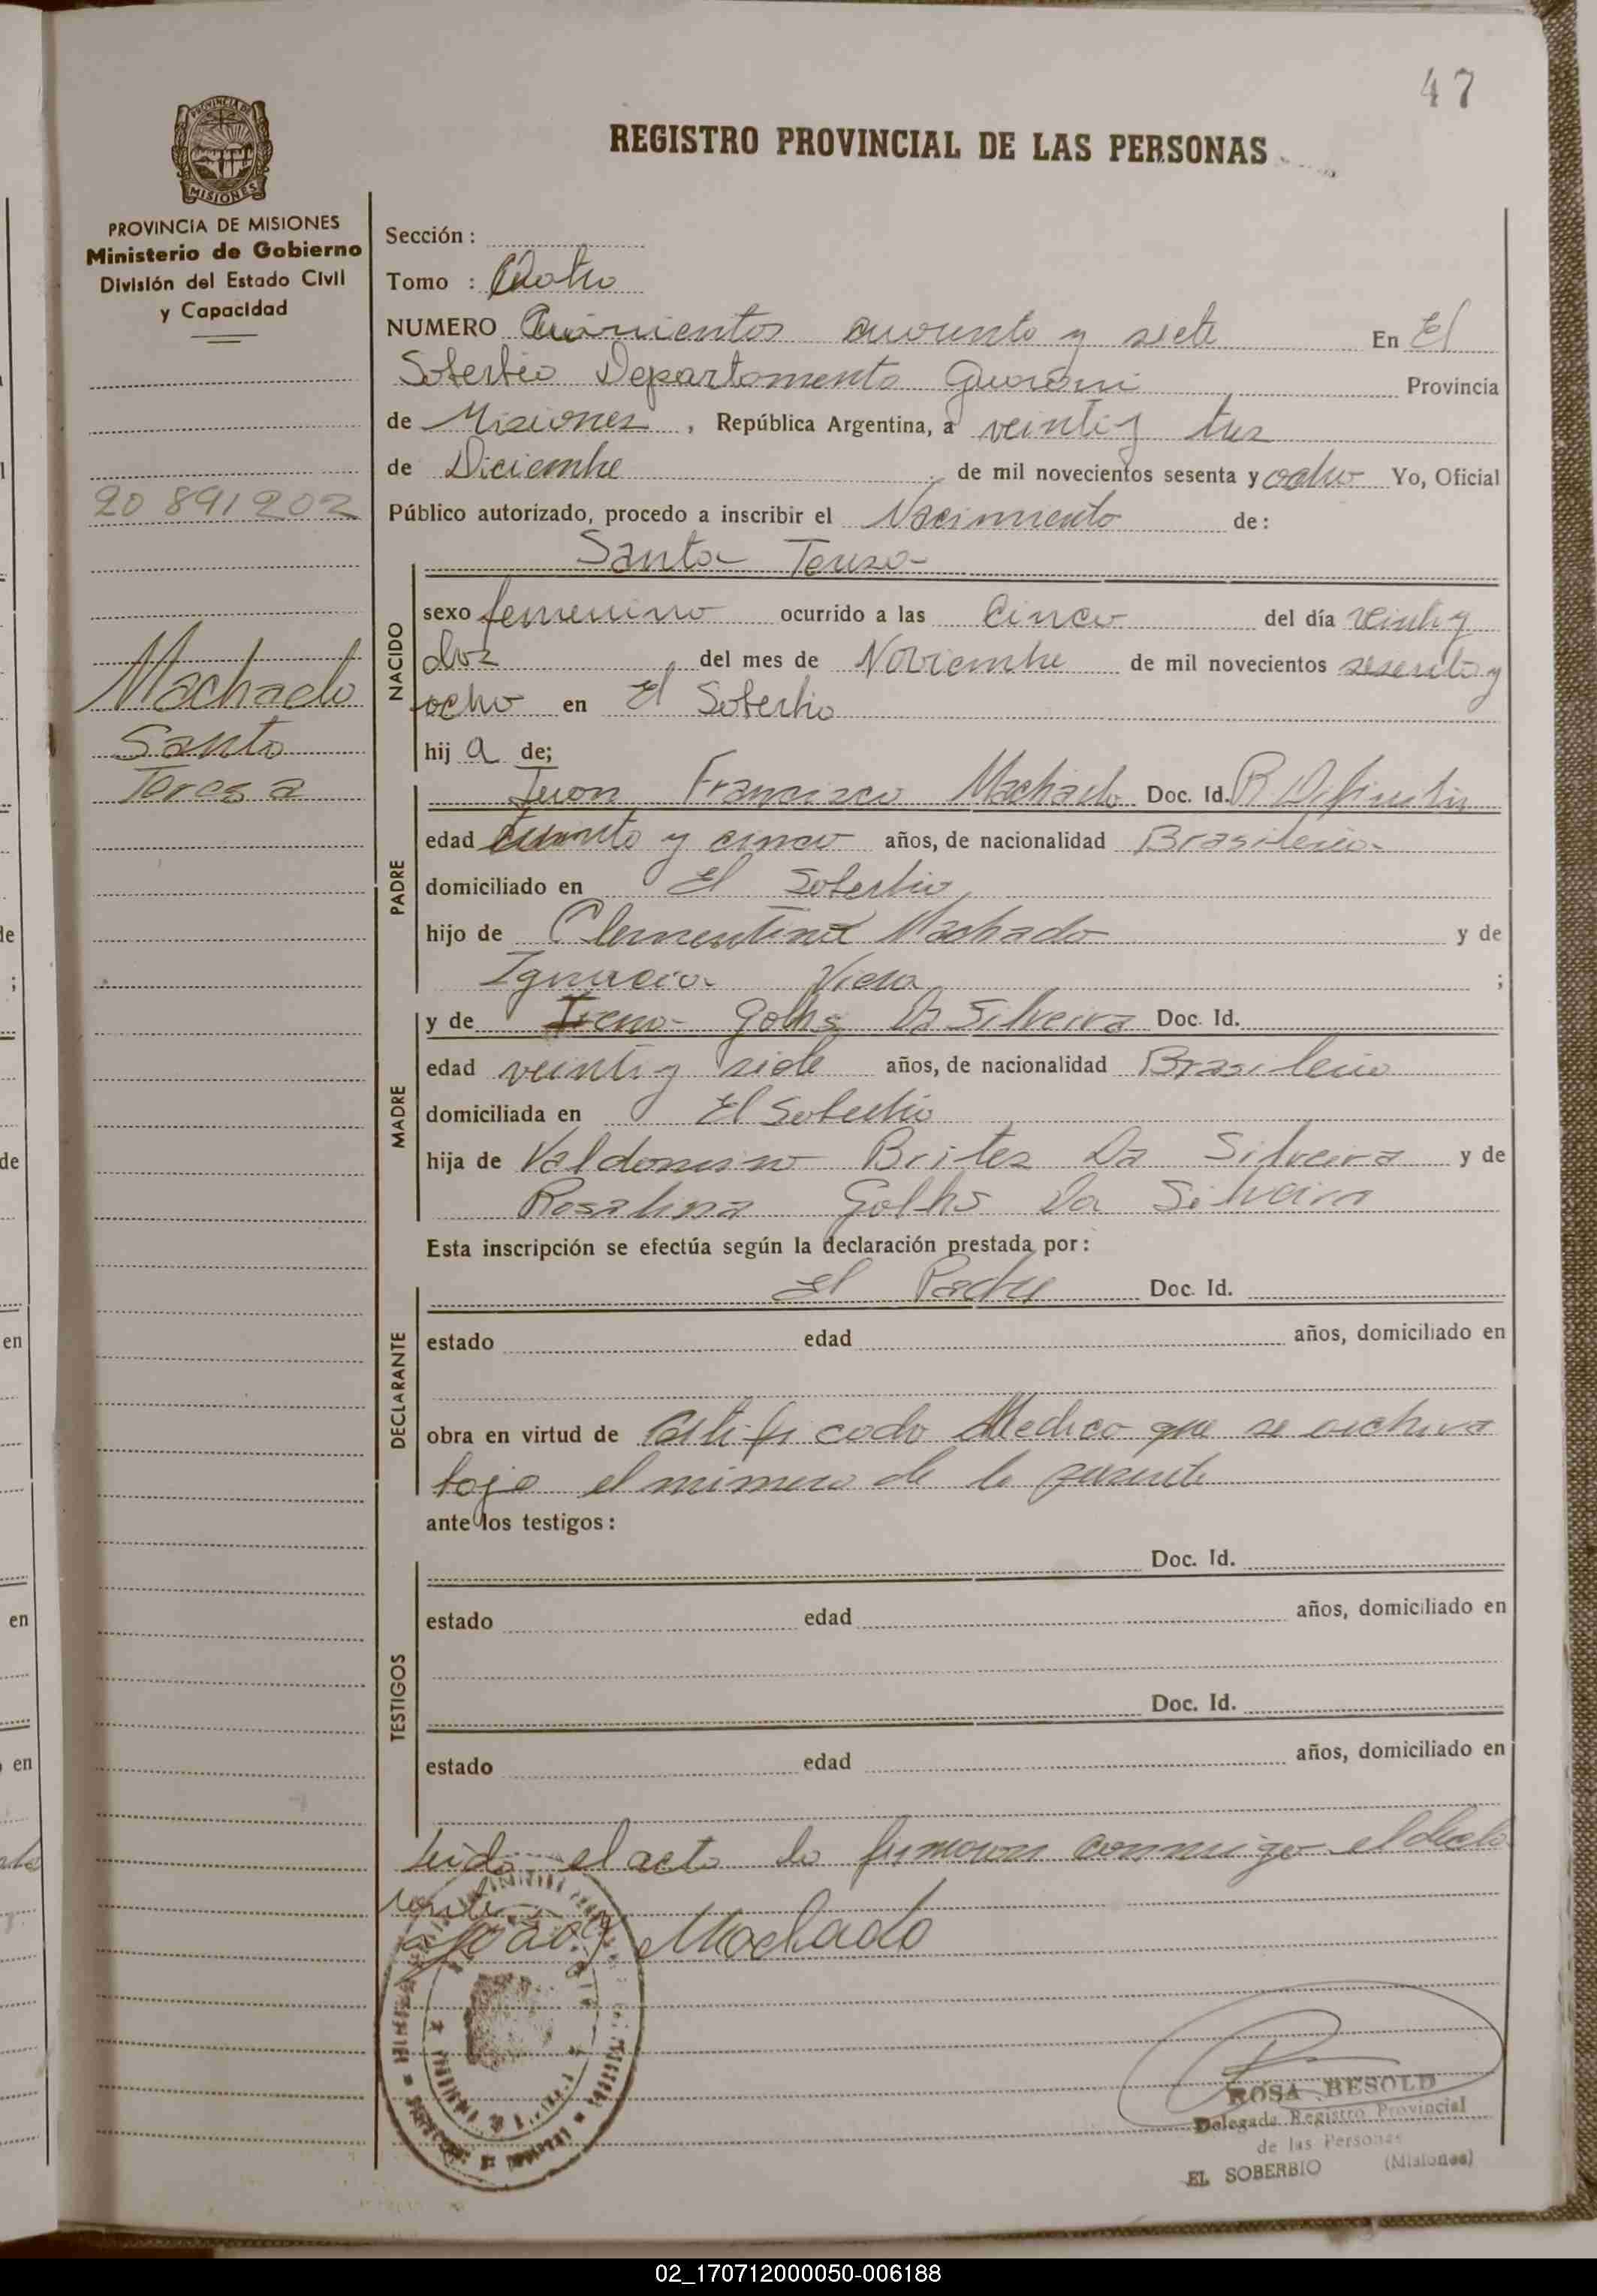 47
PROVINCIA DE
MISIONES
REGISTRO PROVINCIAL DE LAS PERSONAS
PROVINCIA DE MISIONES
Ministerio de Gobierno
División del Estado Civil
y Capacidad
20 891202
Machado
Santa
Teresa
Sección :
Tomo :
NUMERO Quinientos cuarenta y siete En El
Soberbio Departamento Guarani Provincia
de Misiones , República Argentina, a veinti y tres
de Diciembre de mil novecientos sesenta y ocho Yo, Oficial
Público autorizado, procedo a inscribir el Nacimiento de:
Santa Teresa
NACIDO
sexo femenino ocurrido a las cinco del día veinti y
dos del mes de Noviembre de mil novecientos sesenta y
ocho en El Soberbio
hij a de;
PADRE
Juan Francisco Machado Doc. Id.
edad y cinco años, de nacionalidad Brasilera
domiciliado en El Soberbio
hijo de Clementina Machado y de
Ignacia Viera ;
MADRE
y de Golhs Da Silveira Doc. Id.
edad veinti y siete años, de nacionalidad Brasilera
domiciliada en El Soberbio
hija de Valdomiro Britez Da Silveira y de
Rosalina Golhs Da Silveira
Esta inscripción se efectúa según la declaración prestada por:
DECLARANTE
El Padre Doc. Id.
estado edad años, domiciliado en
obra en virtud de Certificado Medico que se archiva
bajo el numero de la presente
ante los testigos:
TESTIGOS
Doc. Id.
estado edad años, domiciliado en
Doc. Id.
estado edad años, domiciliado en
Leida el acta la firmaron conmigo el decla
rante
Machado
ROSA BESOLD
Delegada Registro Provincial
de las Personas
EL SOBERBIO (Misiones)
de
;
de
en
en
en
02_170712000050-006188